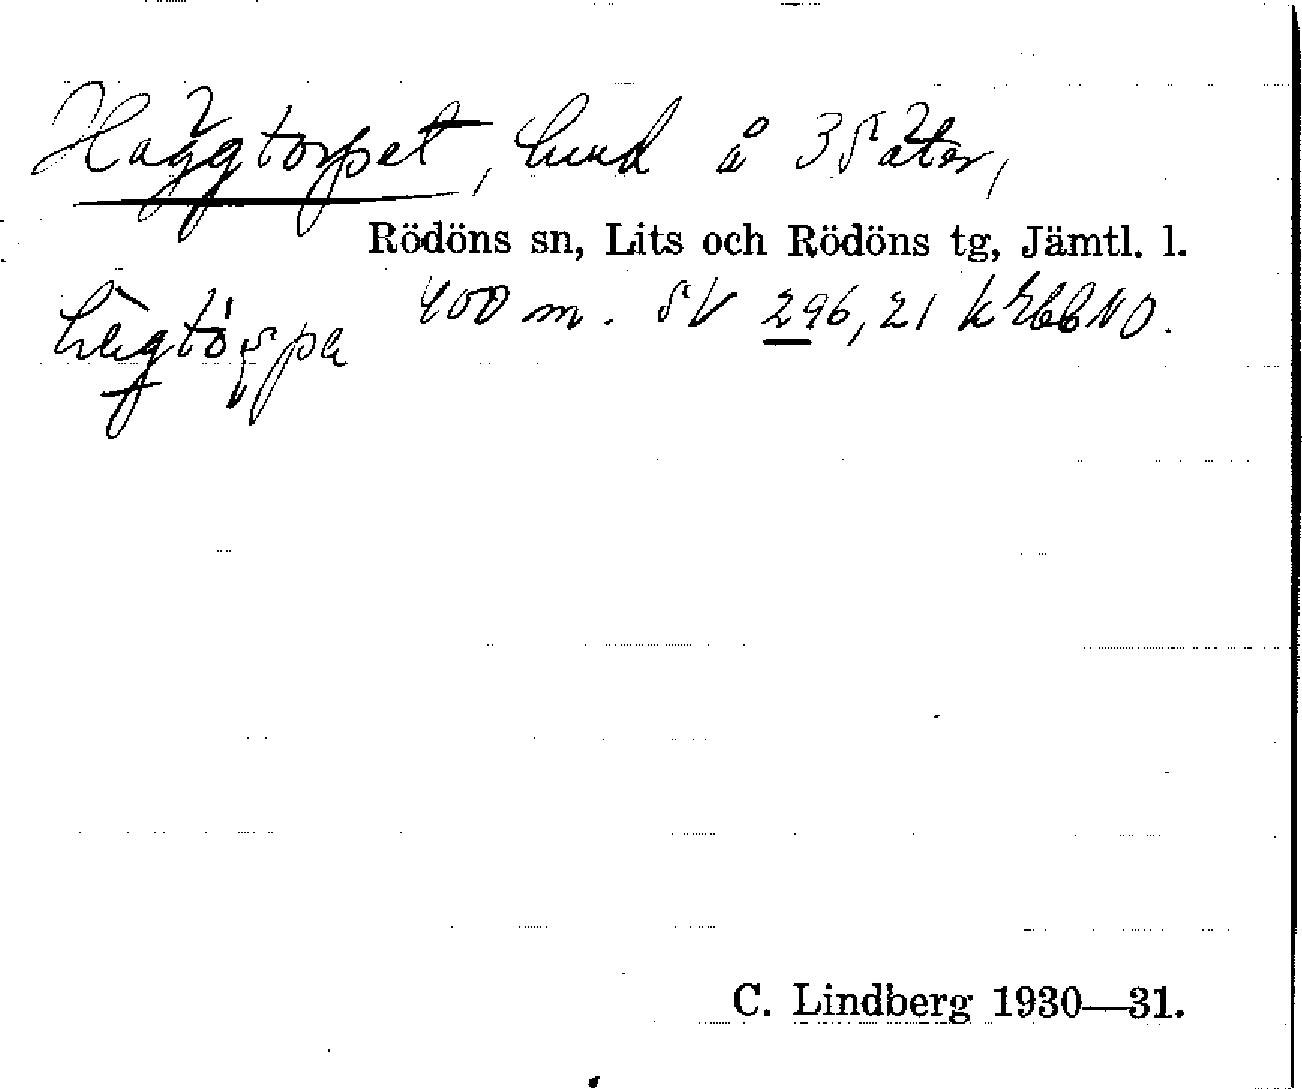 Häggtorpet, lund å 3 Säter,
Rödöns sn, Lits och Rödöns tg, Jämtl. l.
400 m. SV 296,21
C. Lindberg 1930—31.